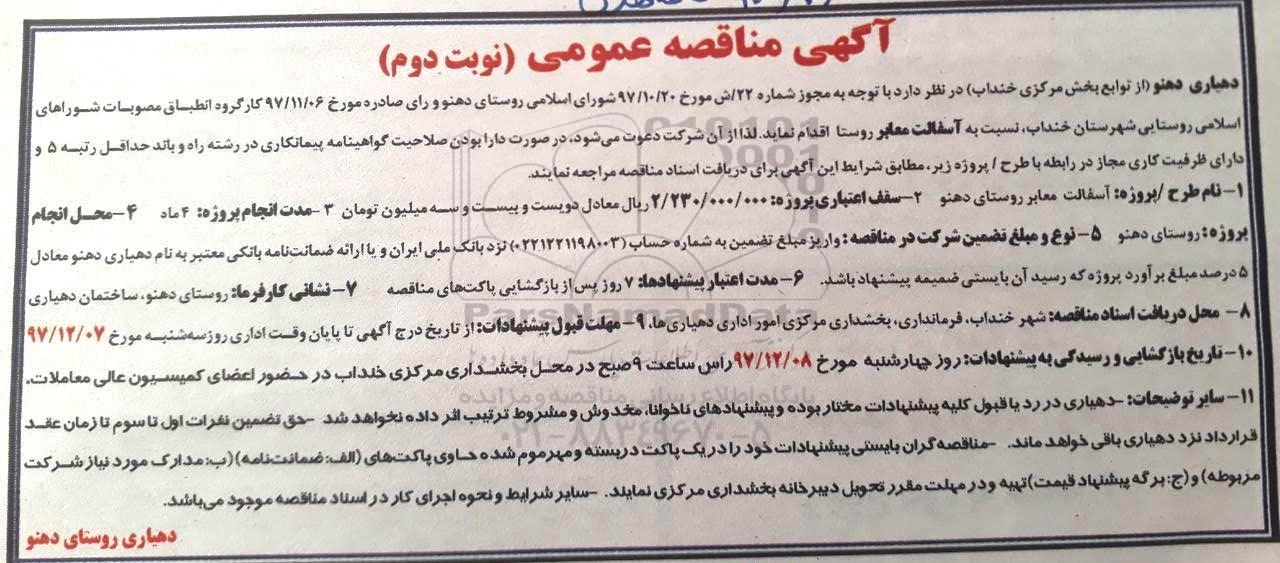 آگهی مناقصه عمومی (نوبت دوم)
دهیاری دهنو (از توابع بخش مرکزی خنداب) در نظر دارد با توجه به مجوز شماره ۲۲/ش مورخ ۹۷/۱۰/۲۰ شورای اسلامی روستای دهنو و رای صادره مورخ ۹۷/۱۱/۰۶ کارگروه انطباق مصوبات شوراهای
اسلامی روستایی شهرستان خنداب، نسبت به آسفالت معابر روستا اقدام نماید. لذا از آن شرکت دعوت می‌شود، در صورت دارا بودن صلاحیت گواهینامه پیمانکاری در رشته راه و باند حداقل رتبه ۵ و
دارای ظرفیت کاری مجاز در رابطه با طرح / پروژه زیر، مطابق شرایط این آگهی برای دریافت اسناد مناقصه مراجعه نمایند.
۱- نام طرح /پروژه: آسفالت معابر روستای دهنو ۲-سقف اعتباری پروژه: ۲/۲۳۰/۰۰۰/۰۰۰ ریال معادل دویست و بیست و سه میلیون تومان ۳-مدت انجام پروژه: ۴ ماه ۴-محل انجام
پروژه: روستای دهنو ۵- نوع و مبلغ تضمین شرکت در مناقصه: واریز مبلغ تضمین به شماره حساب (۰۲۲۱۲۲۱۱۹۸۰۰۳) نزد بانک ملی ایران و یا ارائه ضمانت‌نامه بانکی معتبر به نام دهیاری دهنو معادل
۵ درصد مبلغ برآورد پروژه که رسید آن بایستی ضمیمه پیشنهاد باشد. ۶- مدت اعتبار پیشنهادها: ۷ روز پس از بازگشایی پاکت‌های مناقصه ۷- نشانی کارفرما: روستای دهنو، ساختمان دهیاری
۸- محل دریافت اسناد مناقصه: شهر خنداب، فرمانداری، بخشداری مرکزی امور اداری دهیاری‌ها، ۹- مهلت قبول پیشنهادات: از تاریخ درج آگهی تا پایان وقت اداری روز سه‌شنبه مورخ ۹۷/۱۲/۰۷
۱۰- تاریخ بازگشایی و رسیدگی به پیشنهادات: روز چهارشنبه مورخ ۹۷/۱۲/۰۸ راس ساعت ۹ صبح در محل بخشداری مرکزی خنداب در حضور اعضای کمیسیون عالی معاملات.
۱۱- سایر توضیحات: -دهیاری در رد یا قبول کلیه پیشنهادات مختار بوده و پیشنهادهای ناخوانا، مخدوش و مشروط ترتیب اثر داده نخواهد شد -حق تضمین نفرات اول تا سوم تا زمان عقد
قرارداد نزد دهیاری باقی خواهد ماند. -مناقصه‌گران بایستی پیشنهادات خود را در یک پاکت دربسته و مهرموم شده حاوی پاکت‌های (الف: ضمانت‌نامه) (ب: مدارک مورد نیاز شرکت
مربوطه) و (ج: برگه پیشنهاد قیمت) تهیه و در مهلت مقرر تحویل دبیرخانه بخشداری مرکزی نمایند. -سایر شرایط و نحوه اجرای کار در اسناد مناقصه موجود می‌باشد.
دهیاری روستای دهنو
ParsNamadData
پایگاه اطلاع رسانی مناقصه و مزایده
۰۲۱-۸۸۳۴۹۶۷۰-۵